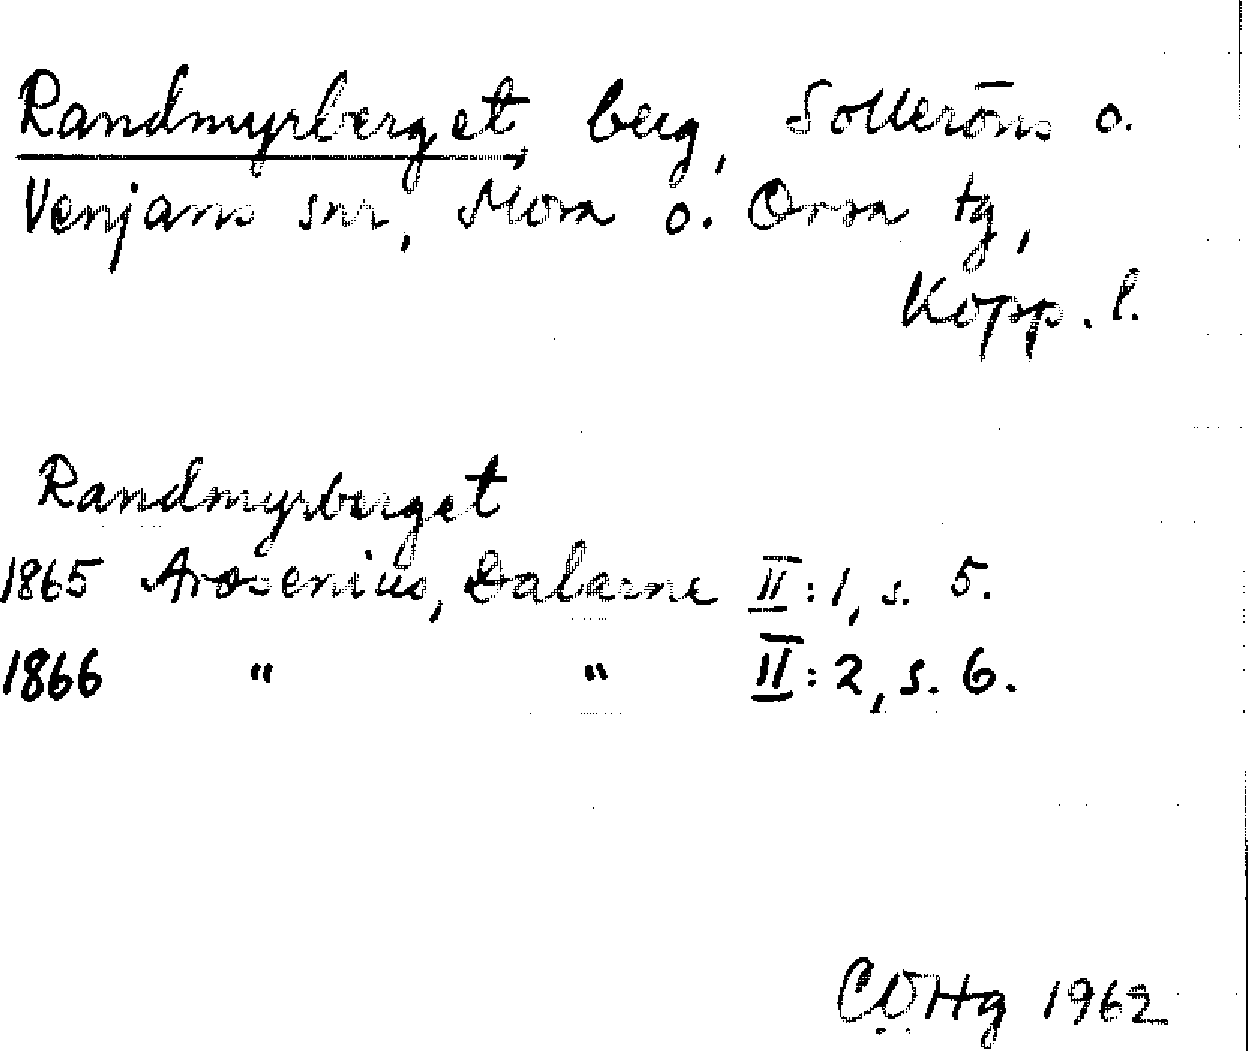 Randmyrberget, berg, Sollerōns o.
Venjans snr, Mora o. Orsa tg,
Kopp. l.
Randmyrberget
1865 Arosenius, Dalarne II:1, s. 5.
1866 " " II:2, s. 6.
1962